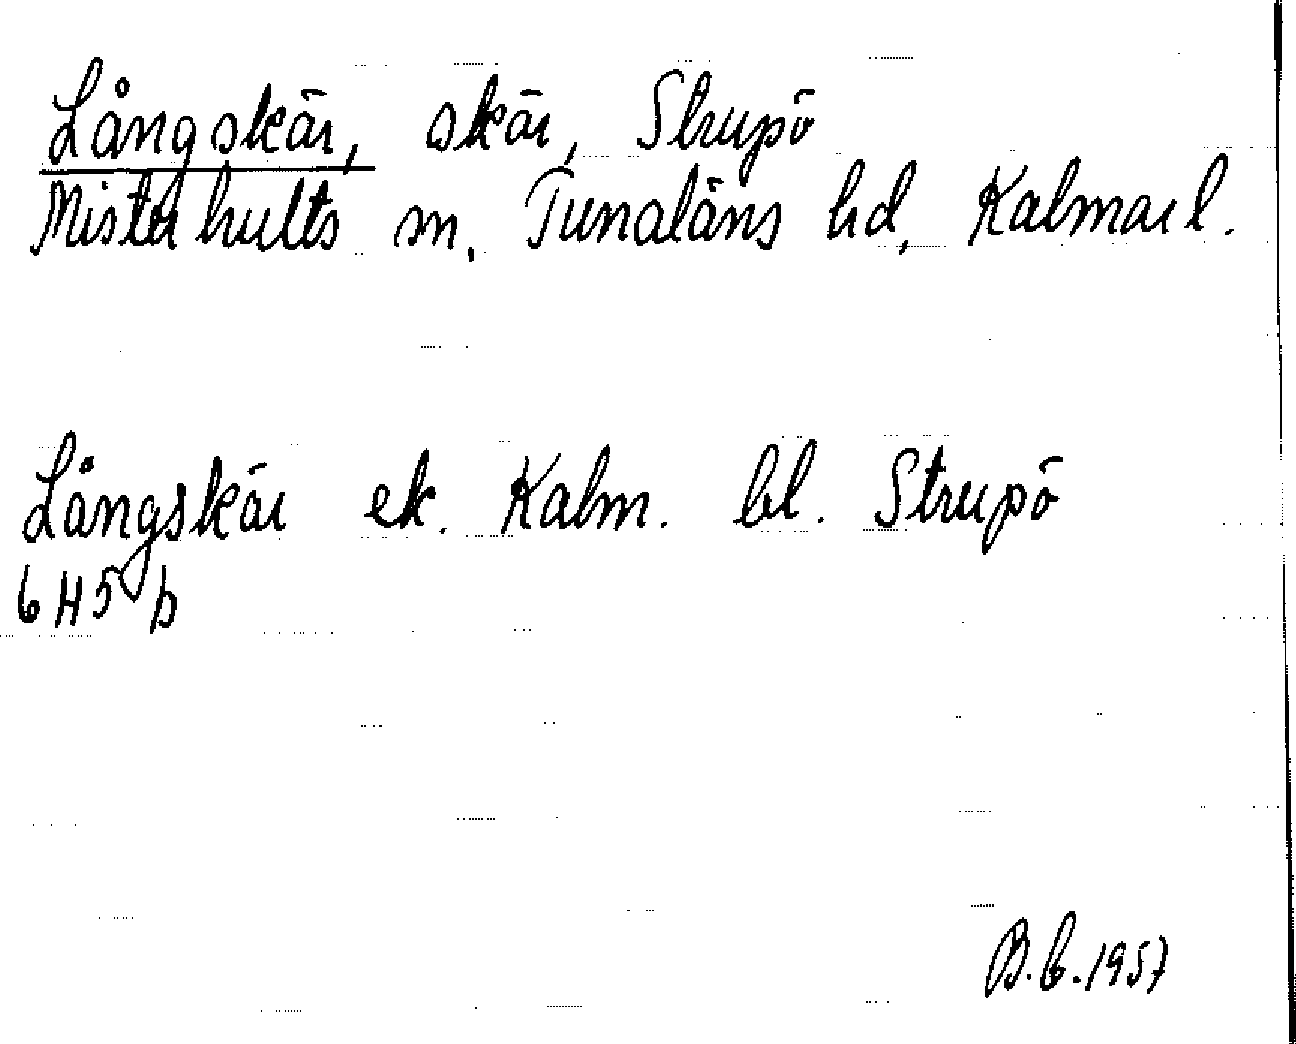 Långskär, skär, Strupö
Misterhults sn, Tunaläns hd, Kalmar l.
Långskär ek. Kalm. bl. Strupö
6 H 5 b
B.G. 1957